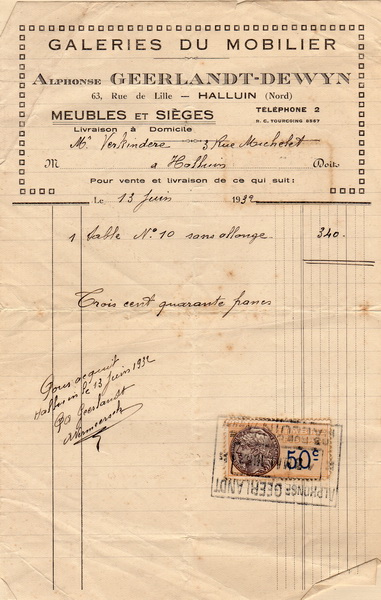 GALERIES DU MOBILIER
ALPHONSE GEERLANDT-DEWYN
63, Rue de Lille — HALLUIN (Nord)
MEUBLES ET SIÈGES
TÉLÉPHONE 2
R. C. TOURCOING 8357
Livraison à Domicile
Mr Verkindere 3 Rue Michelet
M à Halluin Doit:
Pour vente et livraison de ce qui suit:
Le 13 Juin 1932
1 table No 10 sans allonge 340.-
Trois cent quarante francs
Pour acquit
Halluin le 13 Juin 1932
Po Geerlandt
50c
ALPHONSE GEERLANDT